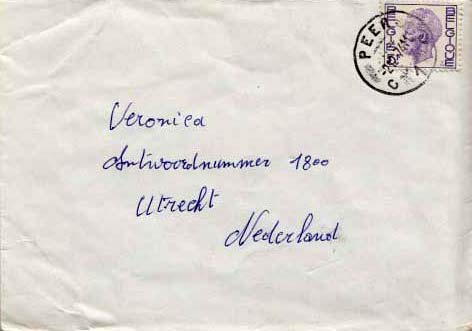 PEER
C
BELGIE
Veronica
Antwoordnummer 1800
Utrecht
Nederland